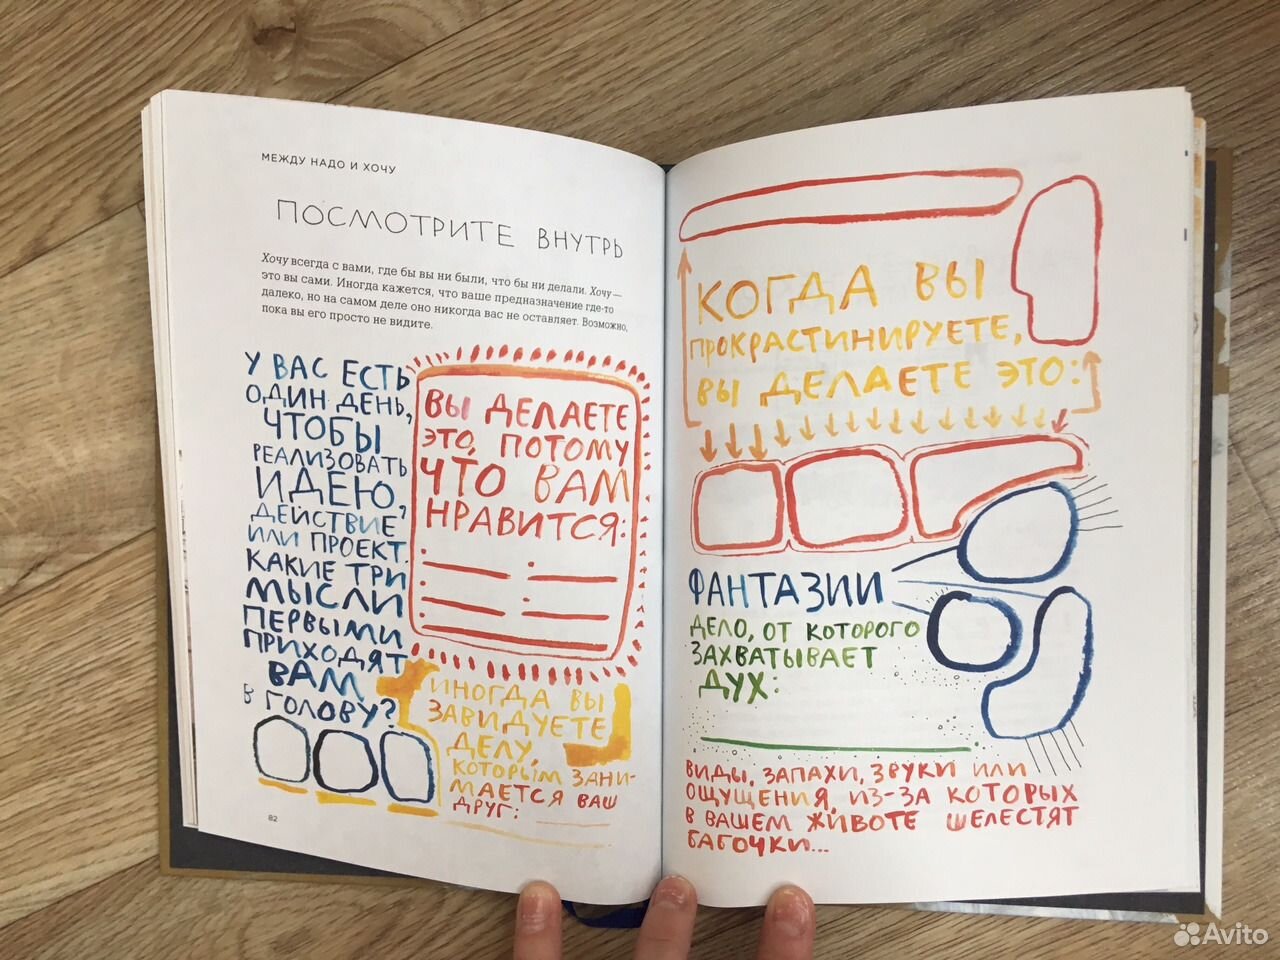 МЕЖДУ НАДО И ХОЧУ
ПОСМОТРИТЕ ВНУТРЬ
Хочу всегда с вами, где бы вы ни были, что бы ни делали. Хочу —
это вы сами. Иногда кажется, что ваше предназначение где-то
далеко, но на самом деле оно никогда вас не оставляет. Возможно,
пока вы его просто не видите.
У ВАС ЕСТЬ
ОДИН ДЕНЬ,
ЧТОБЫ
РЕАЛИЗОВАТЬ
ИДЕЮ,
ДЕЙСТВИЕ
ИЛИ ПРОЕКТ.
КАКИЕ ТРИ
МЫСЛИ
ПЕРВЫМИ
ПРИХОДЯТ
ВАМ
В ГОЛОВУ?
ВЫ ДЕЛАЕТЕ
ЭТО, ПОТОМУ
ЧТО ВАМ
НРАВИТСЯ:
ИНОГДА ВЫ
ЗАВИДУЕТЕ
ДЕЛУ,
КОТОРЫМ ЗАНИ-
МАЕТСЯ ВАШ
ДРУГ:
82
КОГДА ВЫ
ПРОКРАСТИНИРУЕТЕ,
ВЫ ДЕЛАЕТЕ ЭТО:
ФАНТАЗИИ
ДЕЛО, ОТ КОТОРОГО
ЗАХВАТЫВАЕТ
ДУХ:
ВИДЫ, ЗАПАХИ, ЗВУКИ ИЛИ
ОЩУЩЕНИЯ, ИЗ-ЗА КОТОРЫХ
В ВАШЕМ ЖИВОТЕ ШЕЛЕСТЯТ
БАБОЧКИ...
Avito